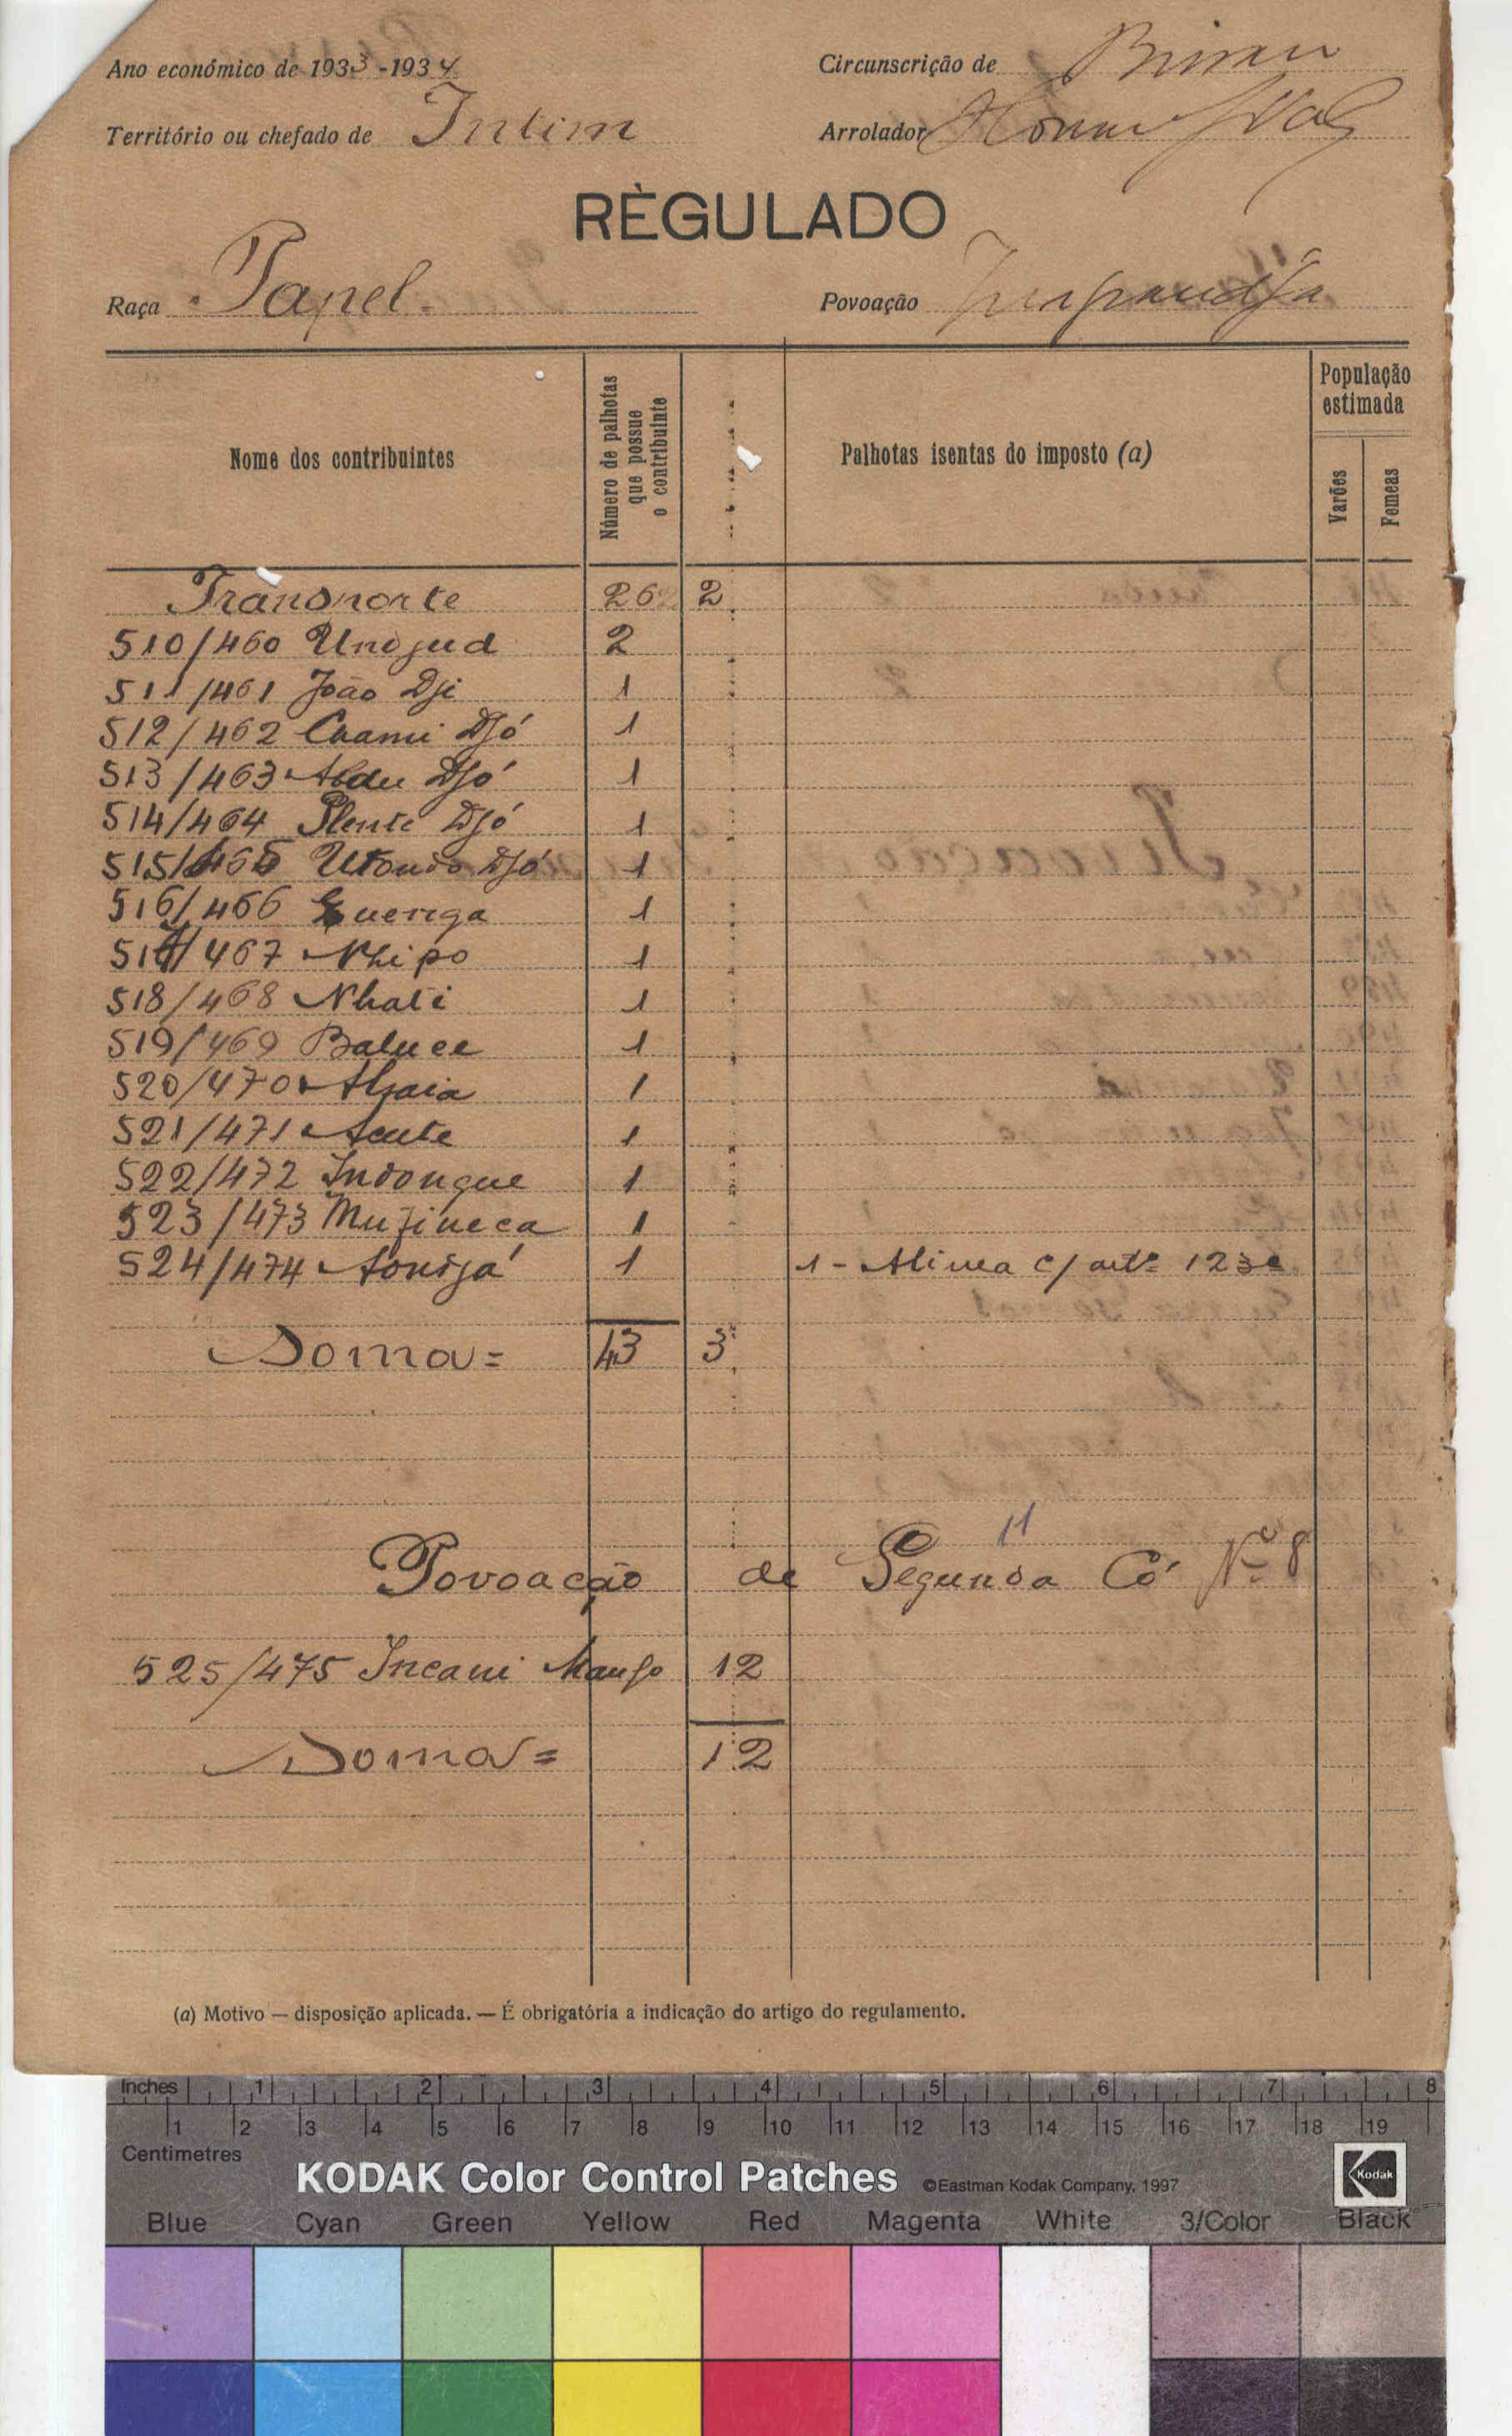 Ano económico de 1933-1934 Circunscrição de Bissau
Território ou chefado de Intim Arrolador
RÈGULADO
Raça Papel Povoação
Nome dos contribuintes Número de palhotas que possue o contribuinte Palhotas isentas do imposto (a) População estimada Varões Femeas
Transporte 26 2
510/460 2
511/461 João Dji 1
512/462 Djó 1
513/463 Abdu Djó 1
514/464 Djó 1
515/465 Utondo Djó 1
516/466 1
517/467 Nhipo 1
518/468 Nhati 1
519/469 Baluce 1
520/470 1
521/471 Acute 1
522/472 Indongue 1
523/473 1
524/474 1 1 - Alinea c/ artº 123º
Soma = 43 3
11
Povoação de Segunda Có Nº 8
525/475 Incani 12
Soma = 12
(a) Motivo — disposição aplicada. — É obrigatória a indicação do artigo do regulamento.
Inches 1 2 3 4 5 6 7 8
1 2 3 4 5 6 7 8 9 10 11 12 13 14 15 16 17 18 19
Centimetres
KODAK Color Control Patches ©Eastman Kodak Company, 1997 Kodak
Blue Cyan Green Yellow Red Magenta White 3/Color Black